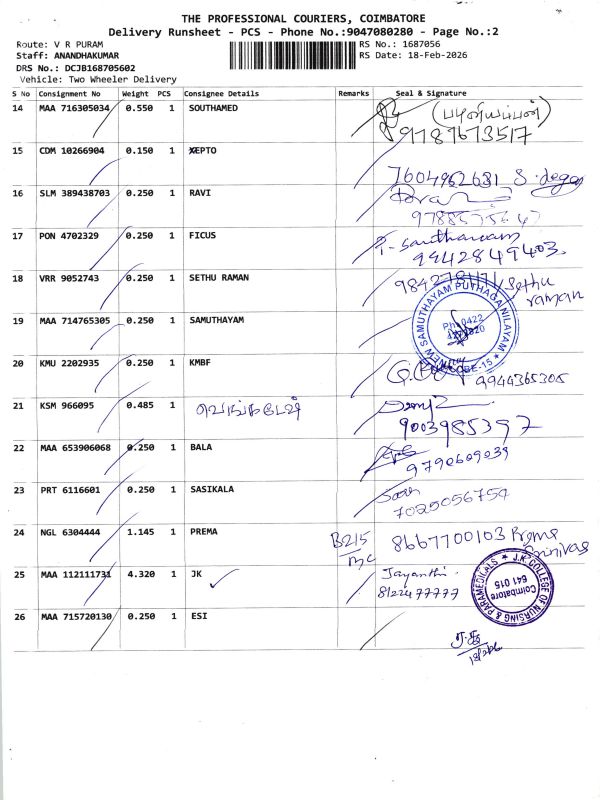 THE PROFESSIONAL COURIERS, COIMBATORE
Delivery Runsheet - PCS - Phone No.:9047080280 - Page No.:2
Route: V R PURAM RS No.: 1687056
Staff: ANANDHAKUMAR RS Date: 18-Feb-2026
DRS No.: DCJB168705602
Vehicle: Two Wheeler Delivery
S No Consignment No Weight PCS Consignee Details Remarks Seal & Signature
14 MAA 716305034 0.550 1 SOUTHAMED (பழனியப்பன்)
9789673517
15 CDM 10266904 0.150 1 XEPTO
7604962681 S.
16 SLM 389438703 0.250 1 RAVI
17 PON 4702329 0.250 1 FICUS
9942849403.
18 VRR 9052743 0.250 1 SETHU RAMAN Sethu
raman
19 MAA 714765305 0.250 1 SAMUTHAYAM NEW SAMUTHAYAM PUTHAGA NILAYAM
20 KMU 2202935 0.250 1 KMBF 9944365305
21 KSM 966095 0.485 1 வெங்கடேஷ்
9003985397
22 MAA 653906068 0.250 1 BALA
9790609039
23 PRT 6116601 0.250 1 SASIKALA
7025056754
24 NGL 6304444 1.145 1 PREMA B215 8667700103 Prema
Srinivas
25 MAA 112111731 4.320 1 JK Jayanthi
8122477777 J.K. COLLEGE OF NURSING & PARAMEDICALS
Coimbatore
641 015
26 MAA 715720130 0.250 1 ESI
18/2/26